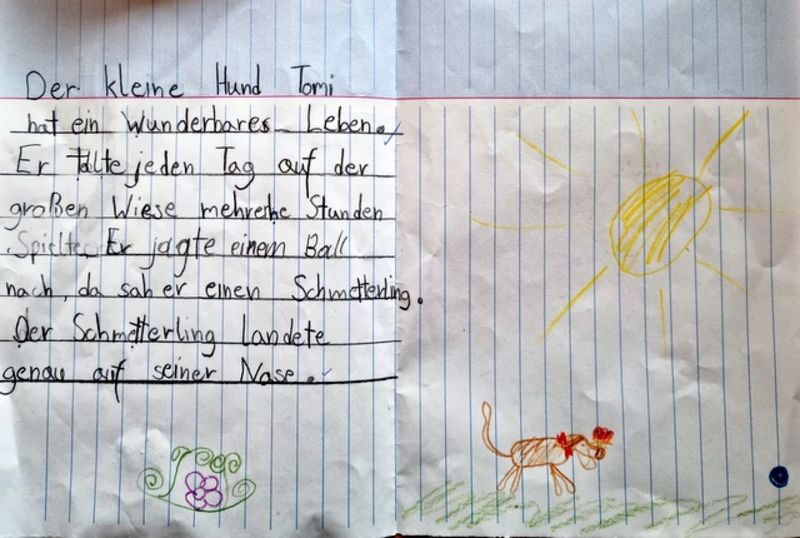 Der kleine Hund Tomi
hat ein wunderbares Leben.
Er jeden Tag auf der
großen Wiese Stunden
Spielte. Er jagte einem Ball
nach, da sah er einen Schmetterling.
Der Schmetterling Landete
genau auf seiner Nase.